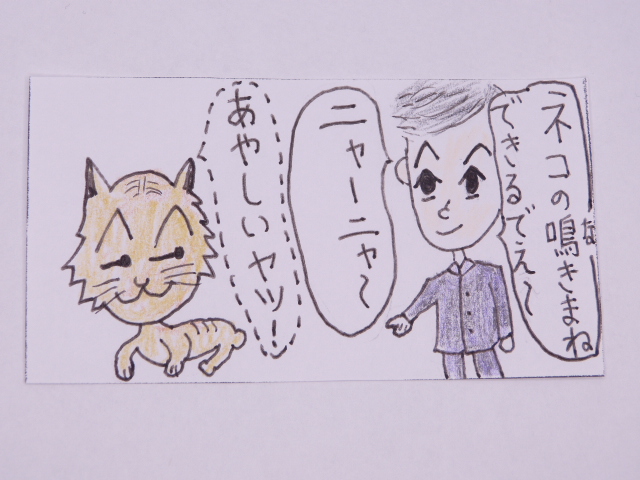 ネコの鳴きまね
な
できるでえ～
ニャーニャ～
あやしいヤツ！